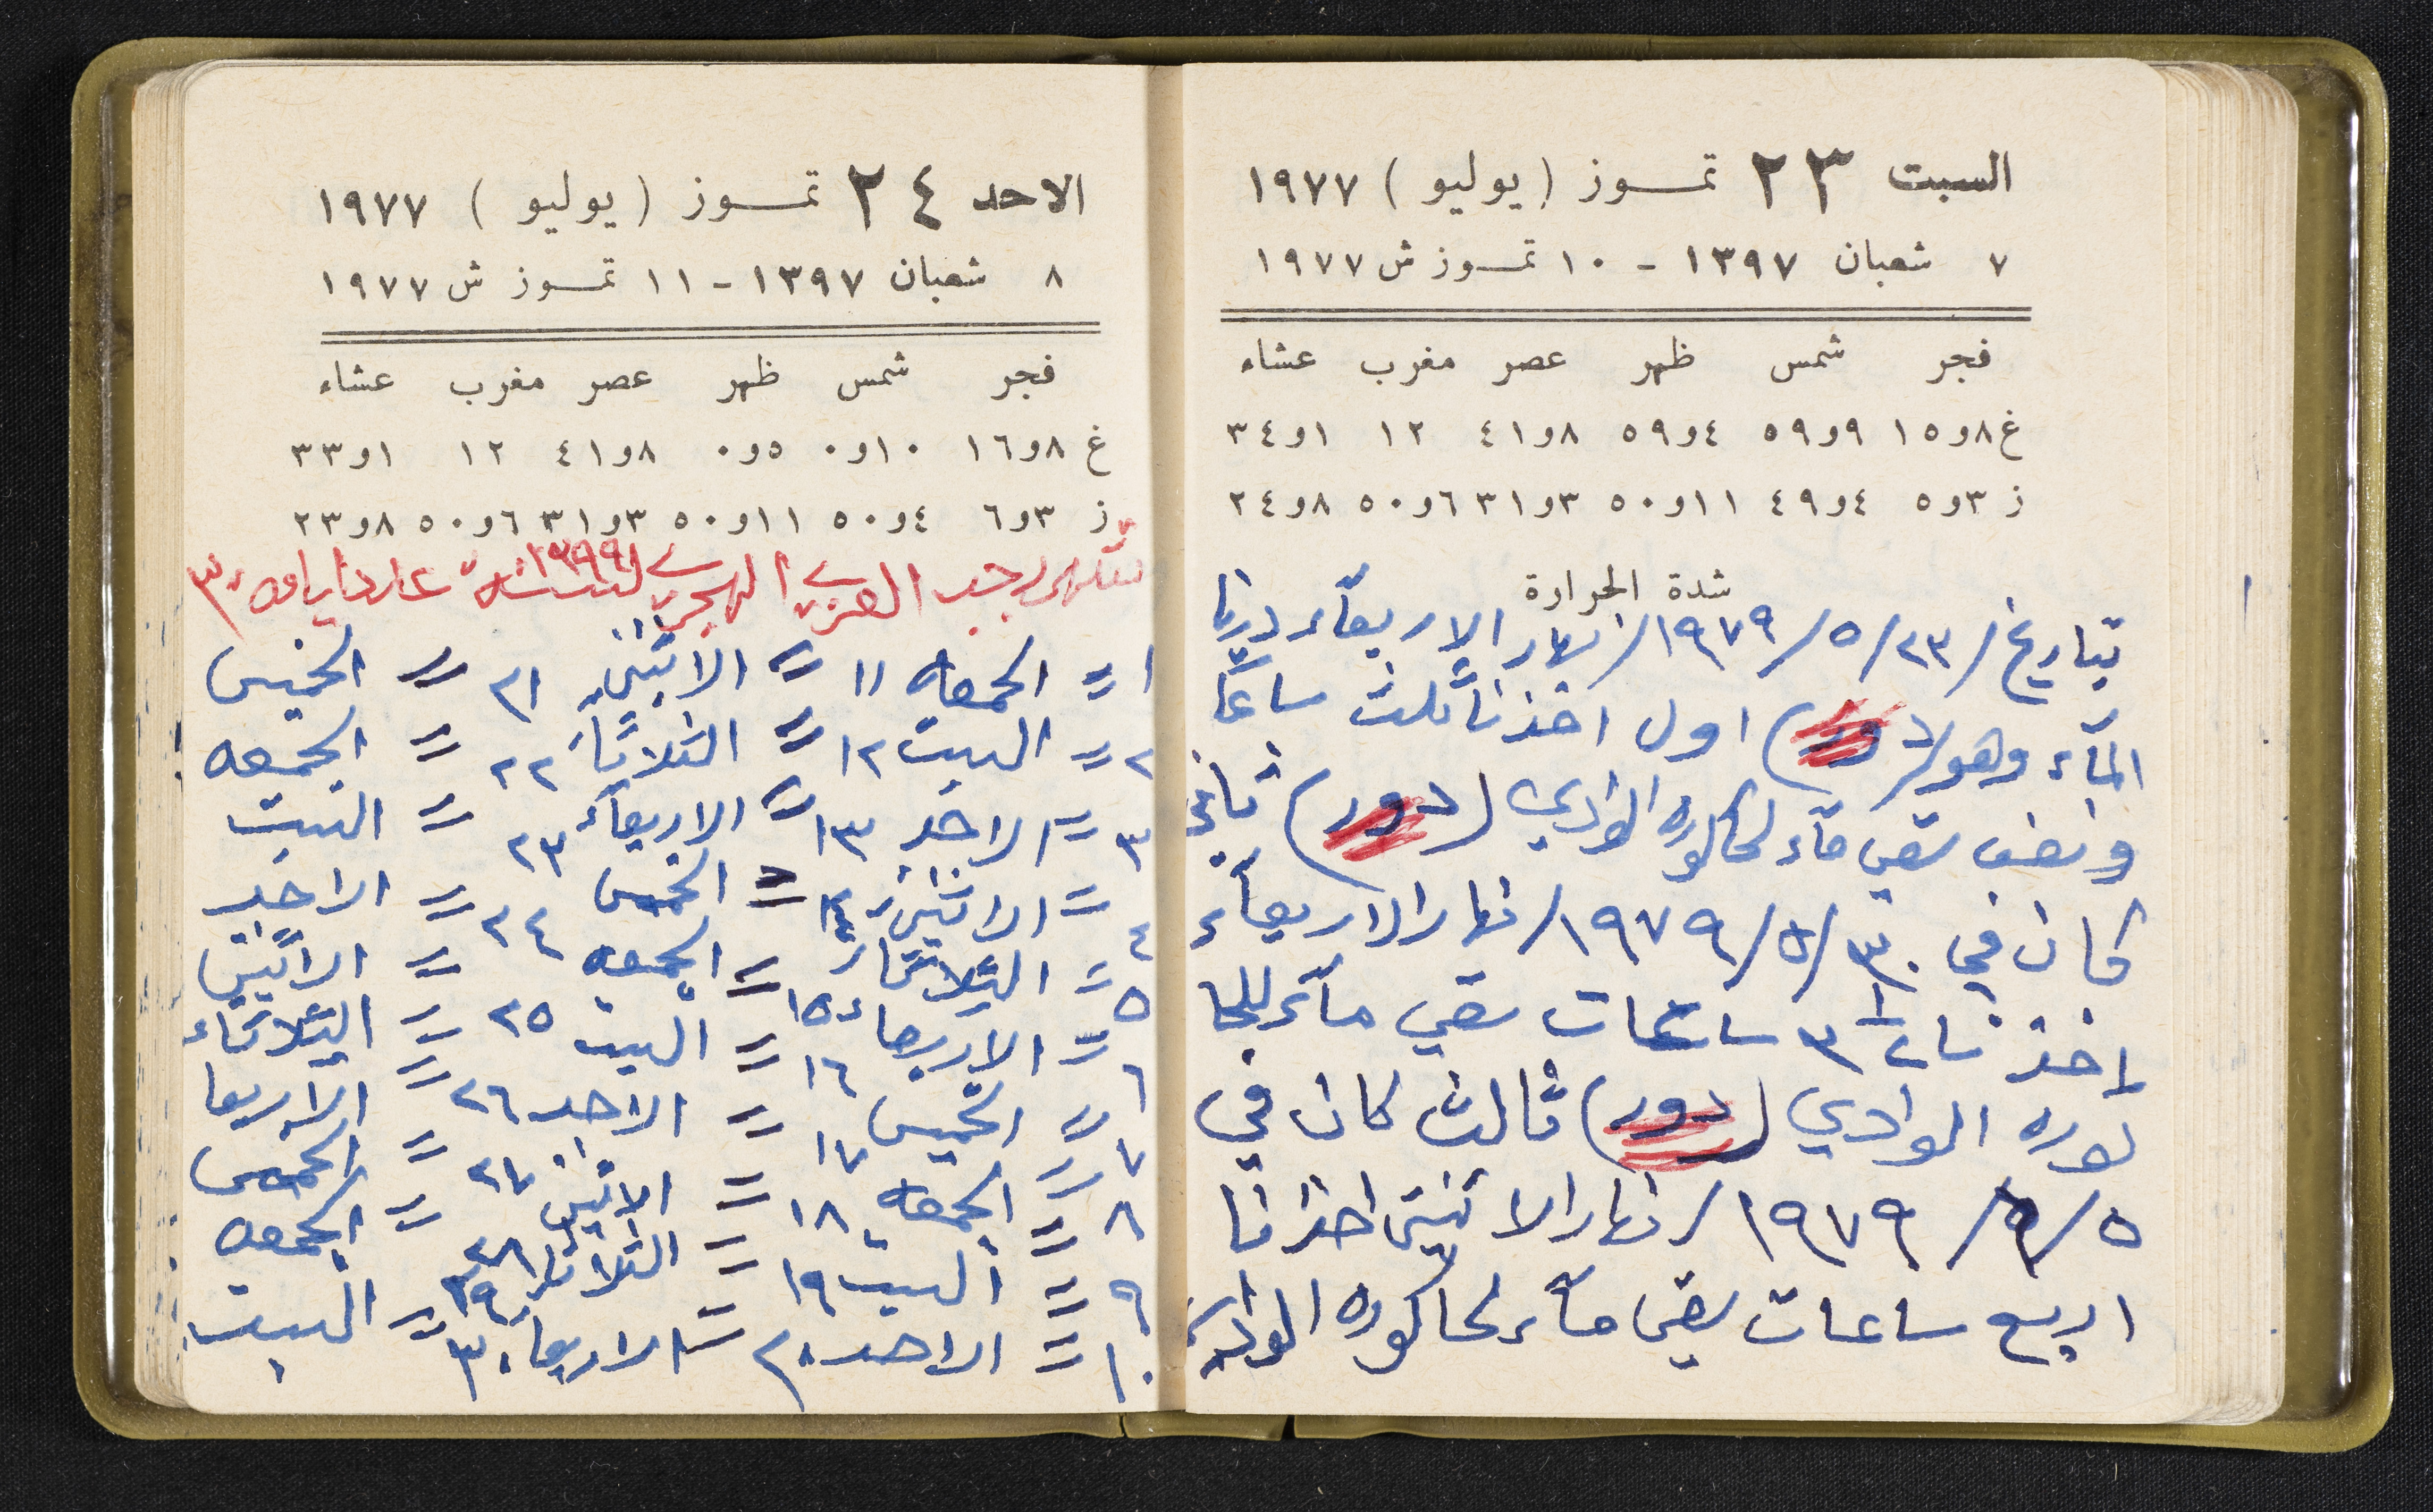 السبت ٢٣ تمـــوز (يوليو) ١٩٧٧
٧ شعبان ١٣٩٧ - ١٠ تمـــوز ش ١٩٧٧
فجر شمس ظهر عصر مغرب عشاء
غ ٨و١٥ ٩و٥٩ ٤و٥٩ ٨و٤١ ١٢ ١و٣٤
ز ٣و٥ ٤و٤٩ ١١و٥٠ ٣و٣١ ٦و٥٠ ٨و٢٤
شدة الحرارة
بتاريخ/٢٣/٥/١٩٧٩/نهار الاربعآء دورنا
المآء وهو (دور) اول اخذنا ثلث ساعا
ونصف سقي مآء لحاكورة الوادي (دور) ثاني
كان في ٣٠/٥/١٩٧٩/نهار الاربعآء
اخذنا ٣½ ساعات سقي مآء للحا
كوره الوادي (دور) ثالث كان في
٥/٦/١٩٧٩/نهار الاثنين اخذنا
اربع ساعات سقي مآء لحاكوره الوادي
الاحد ٢٤ تمـــوز (يوليو) ١٩٧٧
٨ شعبان ١٣٩٧ - ١١ تمـــوز ش ١٩٧٧
فجر شمس ظهر عصر مغرب عشاء
غ ٨و١٦ ١٠و٠ ٥و٠ ٨و٤١ ١٢ ١و٣٣
ز ٣و٦ ٤و٥٠ ١١و٥٠ ٣و٣١ ٦و٥٠ ٨و٢٣
شهر رجب العربي الهجري لسنة ١٣٩٩ عدد ايامه ٣٠
١ = الجمعه ١١ = الاثنين ٢١ = الخميس
٢ = السبت ١٢ = الثلاثاء ٢٢ = الجمعه
٣ = الاحد ١٣ = الاربعآء ٢٣ = السبت
٤ = الاثنين ١٤ = الخميس ٢٤ = الاحد
٥ = الثلاثاء ١٥ = الجمعه ٢٥ = الاثنين
٦ = الاربعاء ١٦ = السبت ٢٦ = الثلاثاء
٧ = الخميس ١٧ = الاحد ٢٧ = الاربعا
٨ = الجمعه ١٨ = الاثنين ٢٨ = الخميس
٩ = السبت ١٩ = الثلاثاء ٢٩ = الجمعه
١٠ = الاحد ٢٠ = الاربعاء ٣٠ = السبت